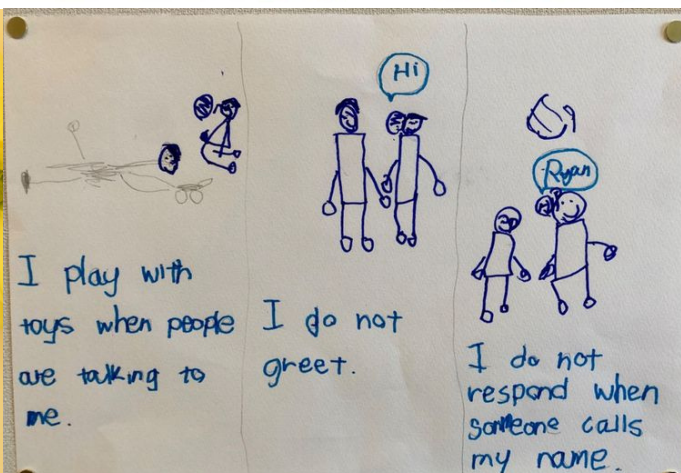 Hi
Ryan
I play with
toys when people
are talking to
me.
I do not
greet.
I do not
respond when
someone calls
my name.